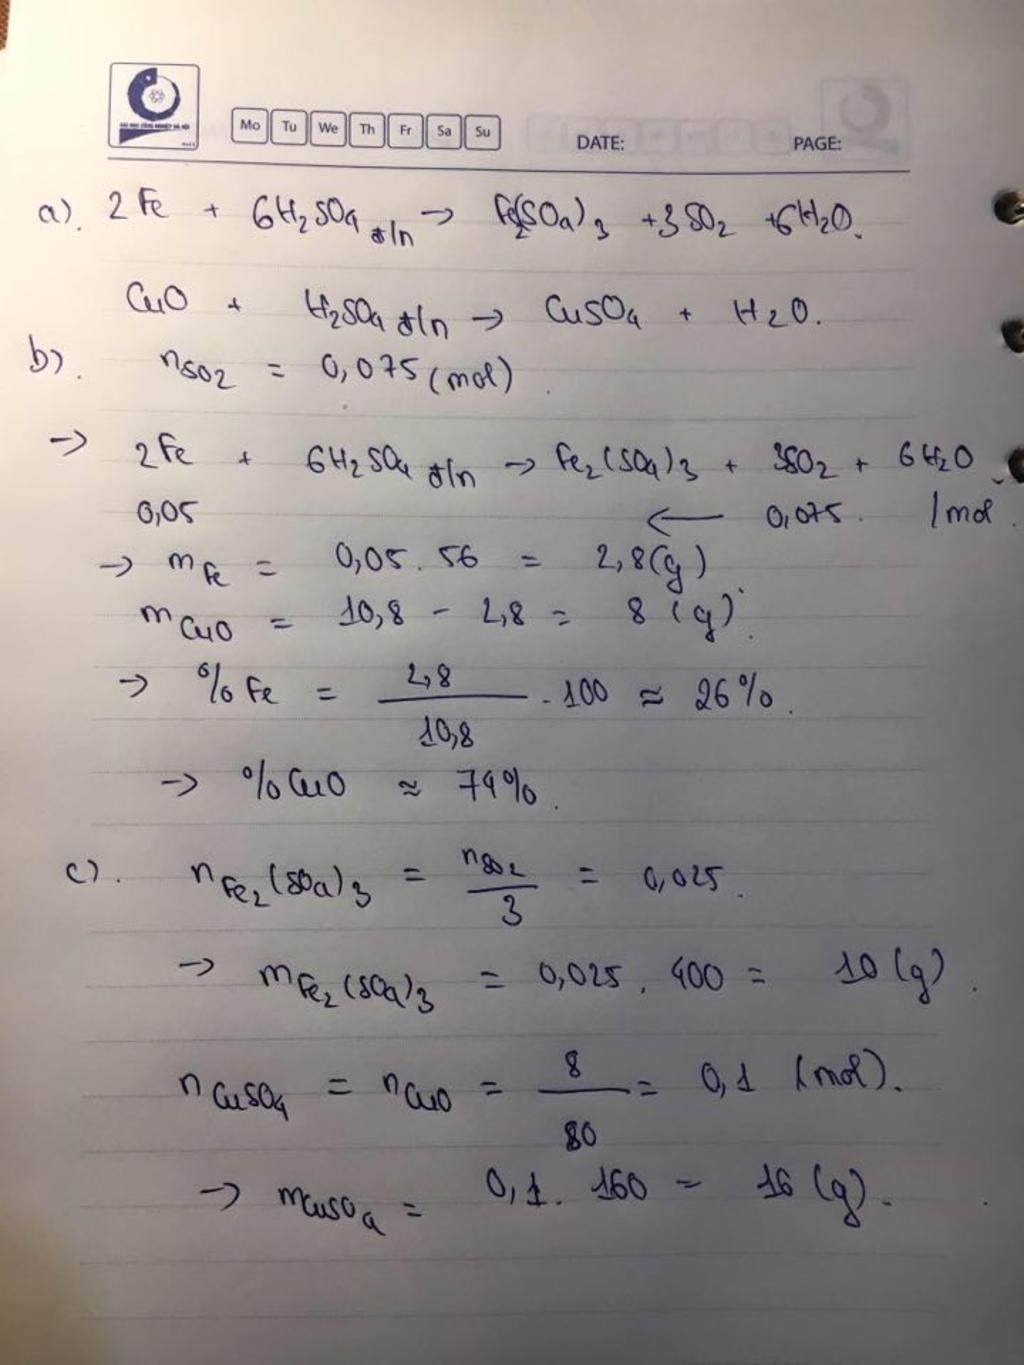 ĐẠI HỌC CÔNG NGHIỆP HÀ NỘI
Mo Tu We Th Fr Sa Su DATE: PAGE:
a). 2Fe + 6H₂SO₄ đ/n → Fe₂(SO₄)₃ + 3SO₂ + 6H₂O.
CuO + H₂SO₄ đ/n → CuSO₄ + H₂O.
b). nSO₂ = 0,075 (mol).
→ 2Fe + 6H₂SO₄ đ/n → Fe₂(SO₄)₃ + 3SO₂ + 6H₂O
0,05 ← 0,075. /mol.
→ mFe = 0,05.56 = 2,8(g)
mCuO = 10,8 - 2,8 = 8 (g).
→ %Fe = 2,8/10,8 . 100 ≈ 26%.
→ %CuO ≈ 74%.
c). nFe₂(SO₄)₃ = nSO₂/3 = 0,025.
→ mFe₂(SO₄)₃ = 0,025.400 = 10 (g).
nCuSO₄ = nCuO = 8/80 = 0,1 (mol).
→ mCuSO₄ = 0,1.160 = 16 (g).